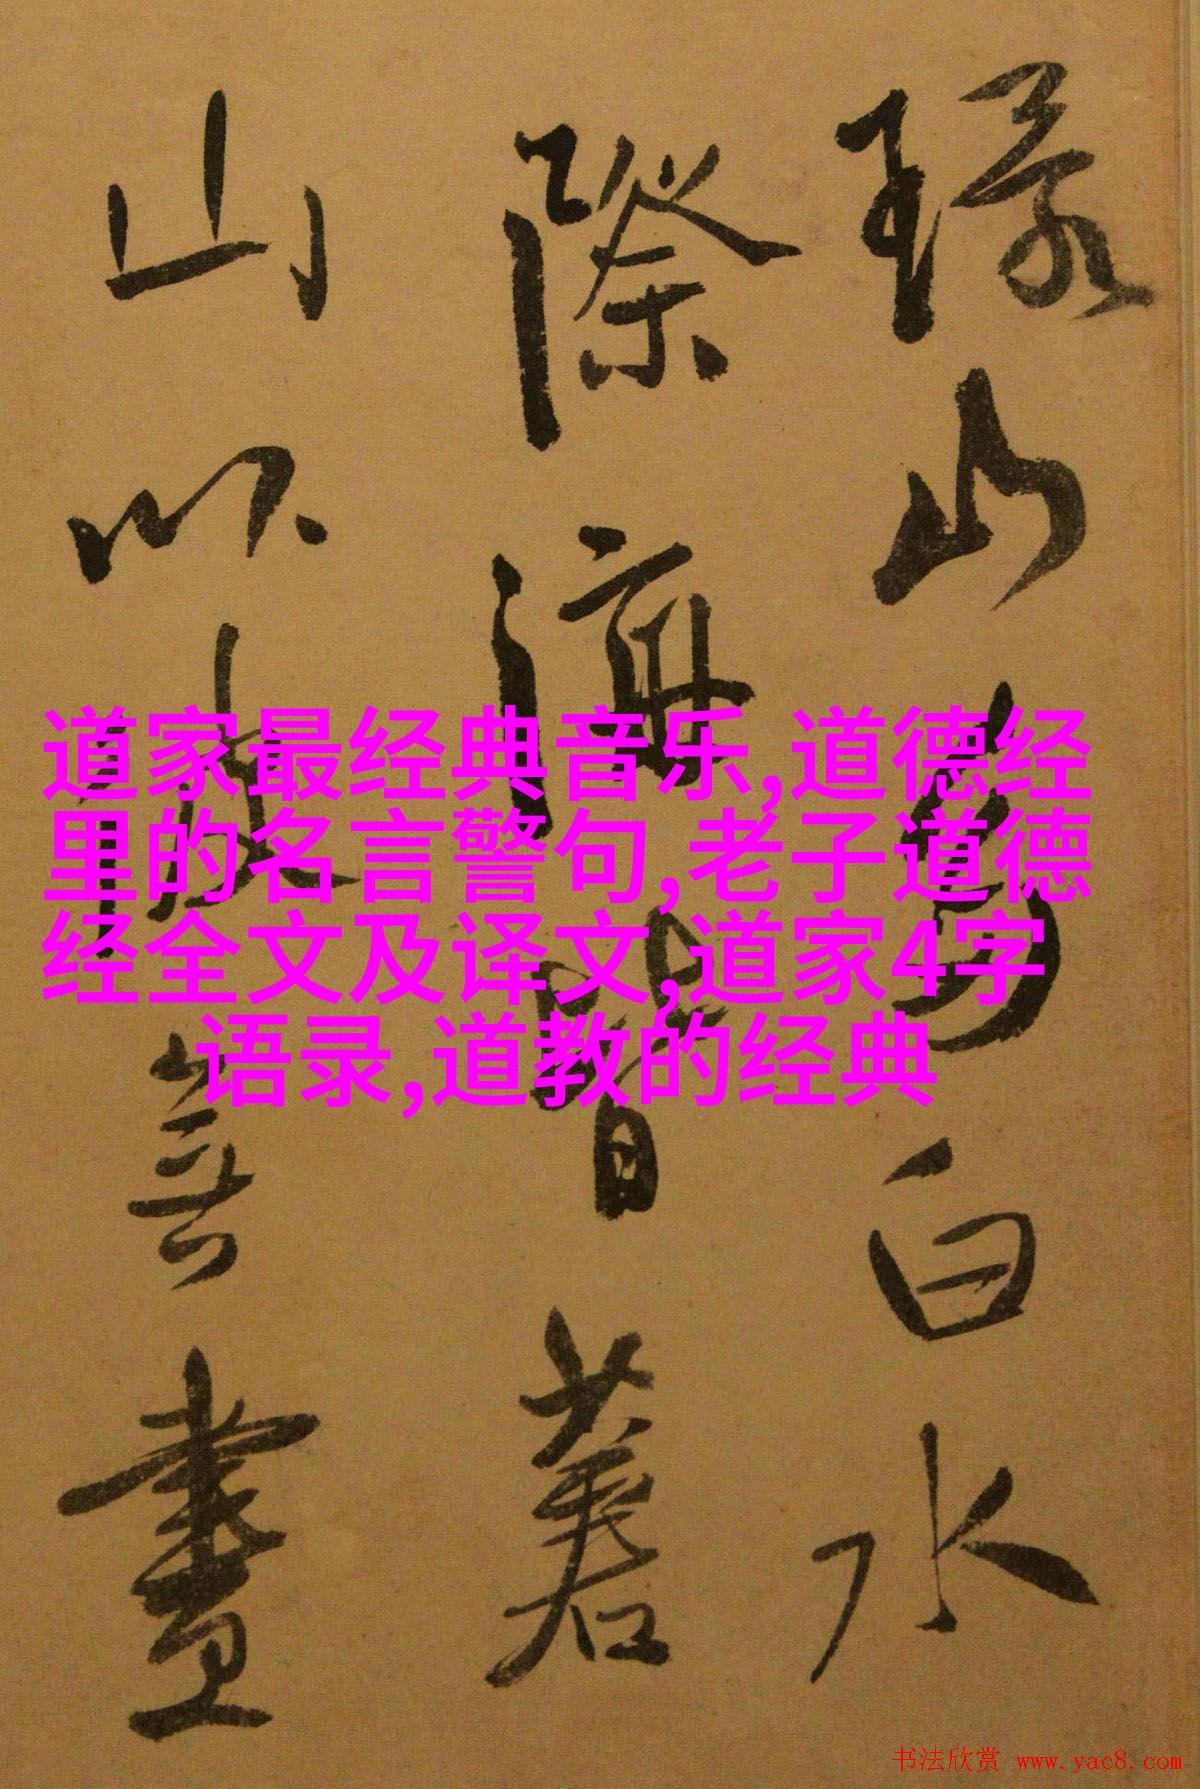 環山白水
際海皆蒼
山以
道家最经典音乐,道德经
里的名言警句,老子道德
经全文及译文,道家4字
语录,道教的经典
书法欣赏 www.yac8.com